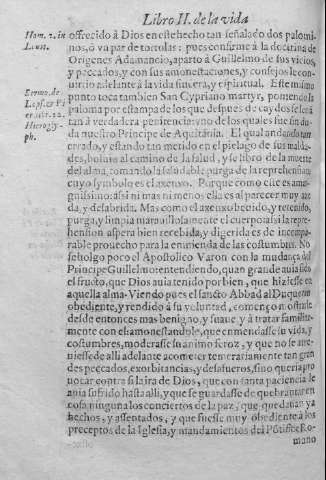 Libro II. de la vida
Hom. 2. in Leuit.
Sermo. de Lapsc. et Pier. lib. 22. Hierogly-ph.
offrecido â Dios en este hecho tan señalado dos palomi-
nos, ô vn par de tortolas: pues confirme â la doctrina de
Origenes Adamancio, apartò â Guillelmo de sus vicios,
y peccados, y con sus amonestaciones, y consejos le con-
uirtio adelante â la vida sincera, y espiritual. Este mismo
punto toca tambien San Cypriano martyr, poniendo la
paloma por estampa de los que despues de caydos se leuã
tan â verdadera penitencia: vno de los quales fue sin du
da nuestro Principe de Aquitania. El qual andando tan
errado, y estando tan metido en el pielago de sus malda-
des, boluio al camino de la salud, y se libro de la muerte
del alma, tomando la saludable purga de la reprehension
cuyo symbolo es el axenxo. Porque como este es amar-
guissimo: assi ni mas ni menos ella es al parecer muy aze
da, y desabrida. Mas como el axenxo beuido, y retenido,
purga, y limpia marauillosamente el cuerpo: assi la repre-
hension aspera bien recebida, y digerida es de incompa-
rable prouecho para la enmienda de las costumbres. No
se holgo poco el Apostolico Varon con la mudança del
Principe Guillelmo: entendiendo, quan grande auia sido
el fructo, que Dios auia tenido por bien, que hiziesse en
aquella alma. Viendo pues el sancto Abbad al Duque tan
obediente, y rendido â su voluntad, començo a mostrar-
desde entonces mas benigno, y suaue, y â tratar familiar-
mente con el: amonestandole, que enmendasse su vida, y
costumbres, moderasse su animo feroz, y que no se atre-
uiesse de alli adelante acometer temerariamente tan gran
des peccados, exorbitancias, y desafueros, sino queria pro
uocar contra si la ira de Dios, que con tanta paciencia le
auia sufrido hasta alli, y que se guardasse de quebrantar en
cosa ninguna los conciertos de la paz, que quedauan ya
hechos, y assentados, y que fuesse muy obediente â los
preceptos de la Iglesia, y mandamientos del Põtifice Ro-
mano